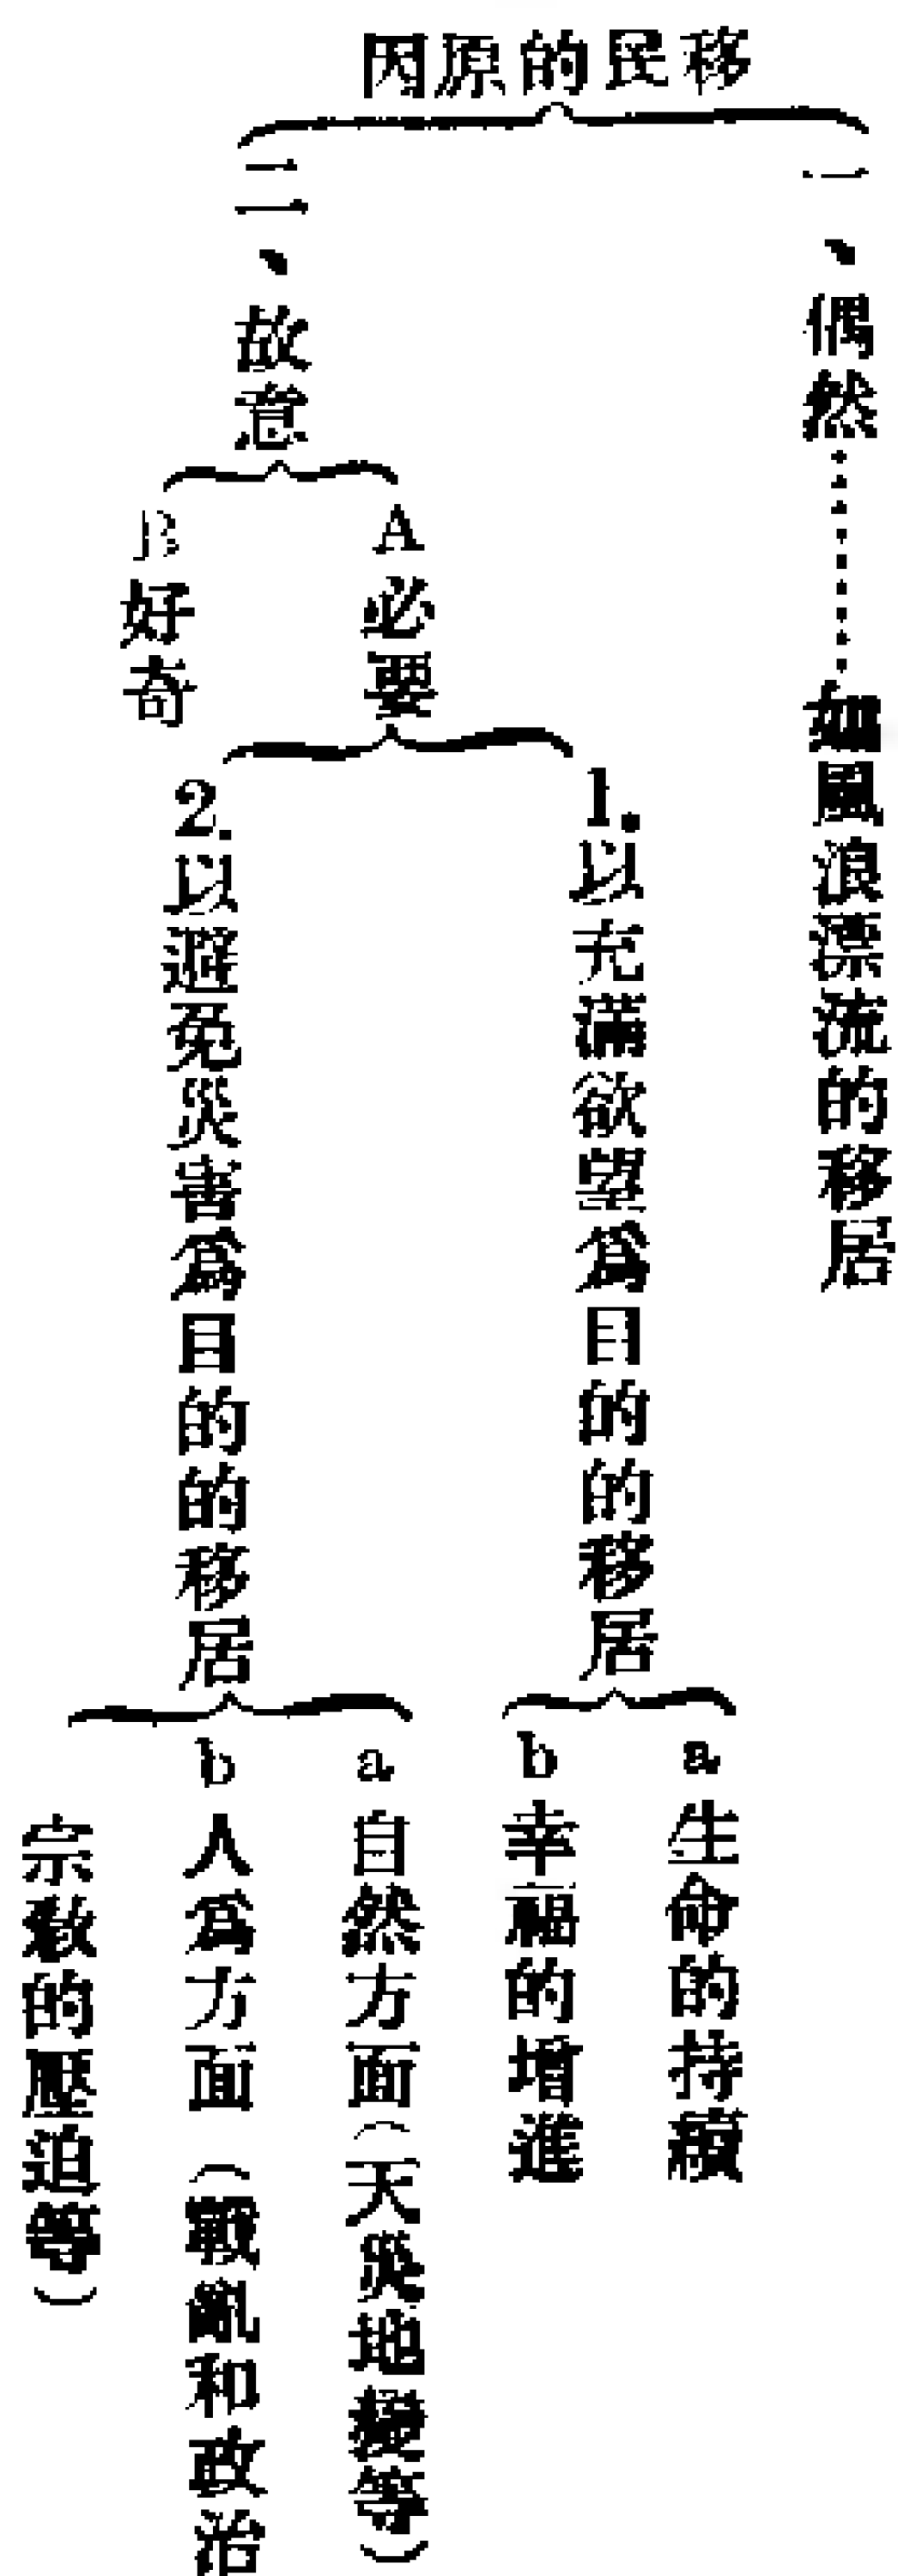 移民的原因
一、偶然………如風浪漂流的移居
二、故意
A必要
1.以充滿欲望爲目的的移居
a生命的持續
b幸福的增進
2.以避免災害爲目的的移居
a自然方面(天災地變等)
b人爲方面(戰亂和政治
宗敎的壓迫等)
B好奇